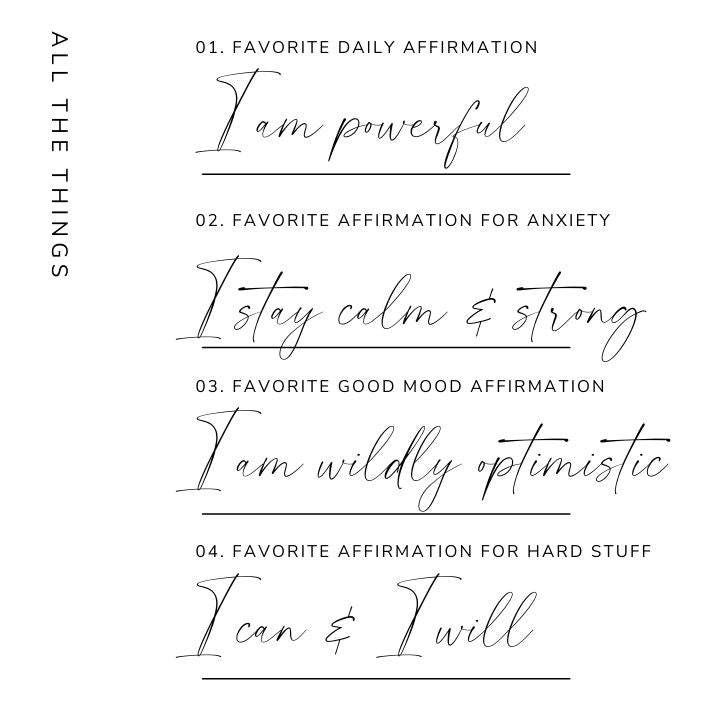 ALL THE THINGS
01. FAVORITE DAILY AFFIRMATION
I am powerful
02. FAVORITE AFFIRMATION FOR ANXIETY
I stay calm & strong
03. FAVORITE GOOD MOOD AFFIRMATION
I am wildly optimistic
04. FAVORITE AFFIRMATION FOR HARD STUFF
I can & I will